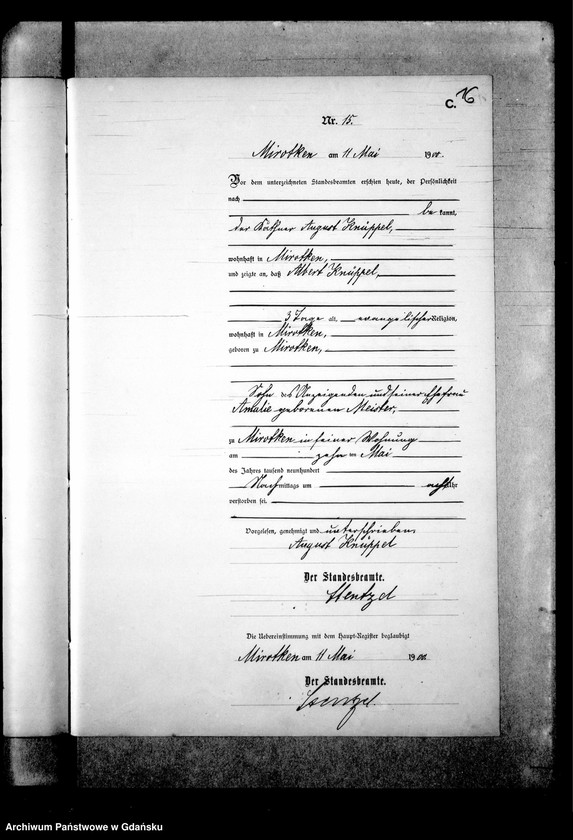 C. 16
Nr. 15.
Mirotken am 11 Mai 1900.
Vor dem unterzeichneten Standesbeamten erschien heute, der Persönlichkeit
nach
be kannt,
der Käthner August Knüppel,
wohnhaft in Mirotken,
und zeigte an, daß Albert Knüppel,
3 Tage alt, evangelischer Religion,
wohnhaft in Mirotken,
geboren zu Mirotken,
Sohn des Anzeigenden und seiner Ehefrau
Amalie geborenen Meister,
zu Mirotken in seiner Wohnung
am zehn ten Mai
des Jahres tausend neunhundert
Nachmittags um acht Uhr
verstorben sei.
Vorgelesen, genehmigt und unterschrieben.
August Knüppel
Der Standesbeamte.
Die Uebereinstimmung mit dem Haupt-Register beglaubigt
Mirotken am 11 Mai 1900.
Der Standesbeamte.
Archiwum Państwowe w Gdańsku